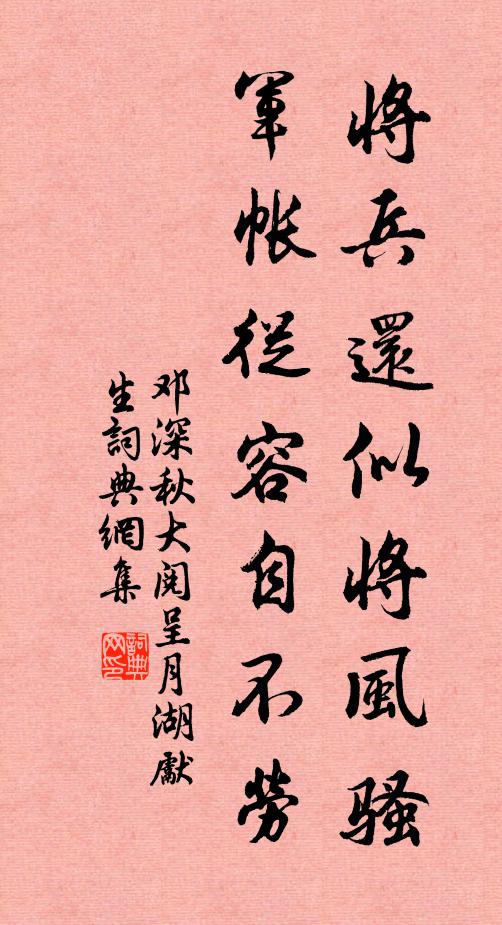 將兵還似將風騷
軍帳從容自不勞
邓深秋大阅呈月湖獻
生詞典網集
詞典
网印